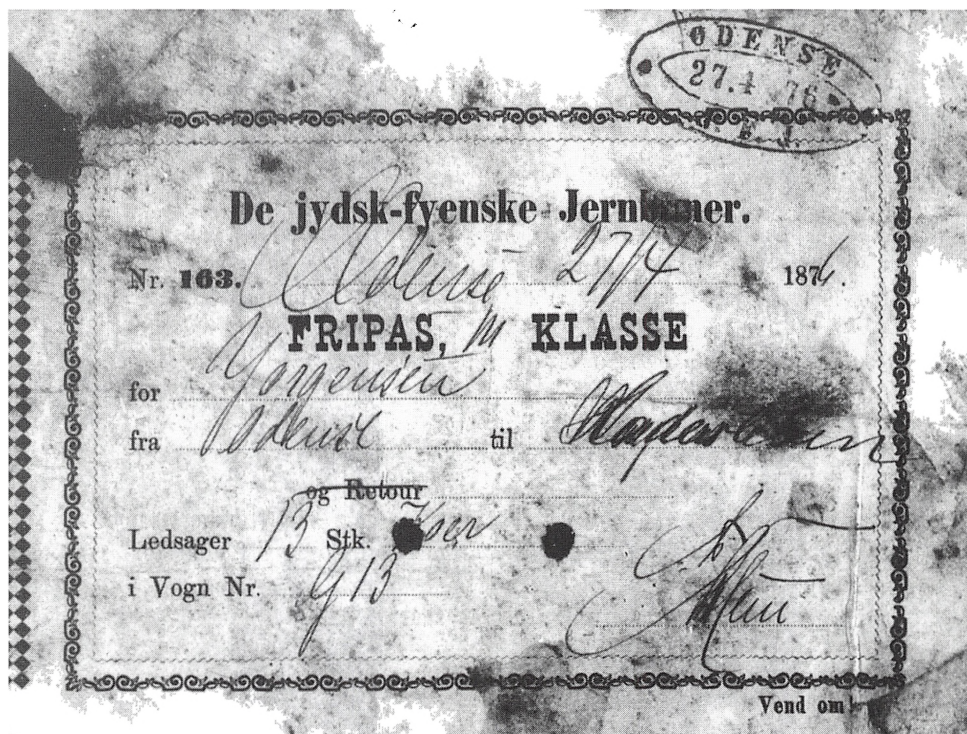 ODENSE
27.4 76
F. J.
De jydsk-fyenske Jernbaner.
Nr. 163. Odense 27/4 1876.
FRIPAS, III KLASSE
for Jørgensen
fra Odense til
og Retour
Ledsager 13 Stk. Køer
i Vogn Nr. 913
Vend om!